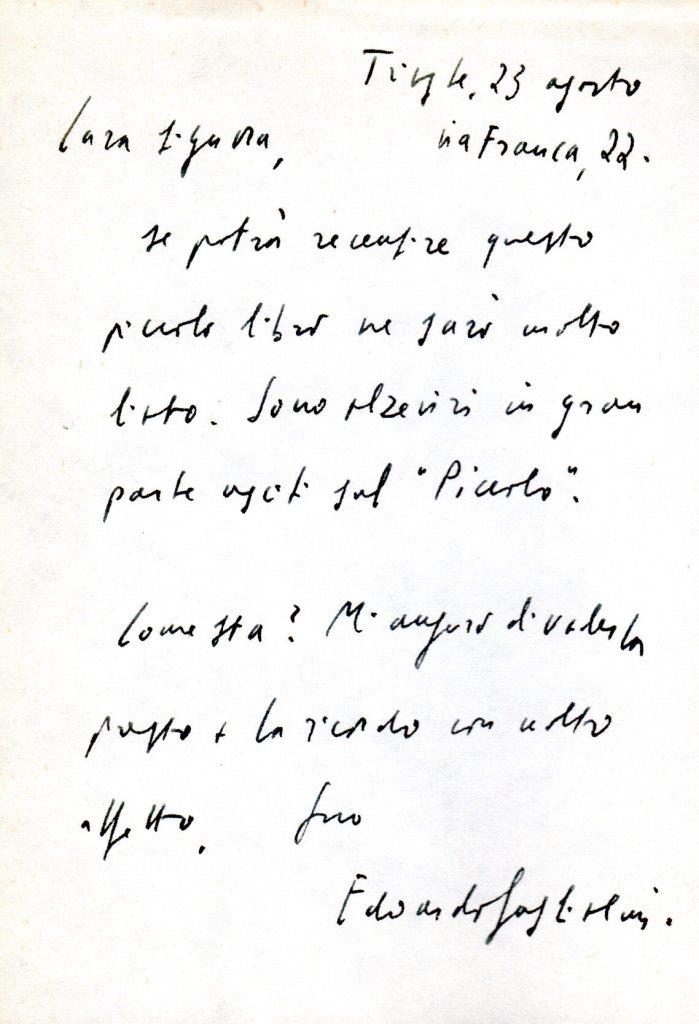 Trieste, 23 agosto
Cara signora, via Franca, 22.
se potrà recensire questo
piccolo libro ne sarò molto
lieto. Sono elzeviri in gran
parte usciti sul "Piccolo".
Come sta? Mi auguro di vederla
presto e la ricordo con molto
affetto. Suo
Edoardo Guglielmi.